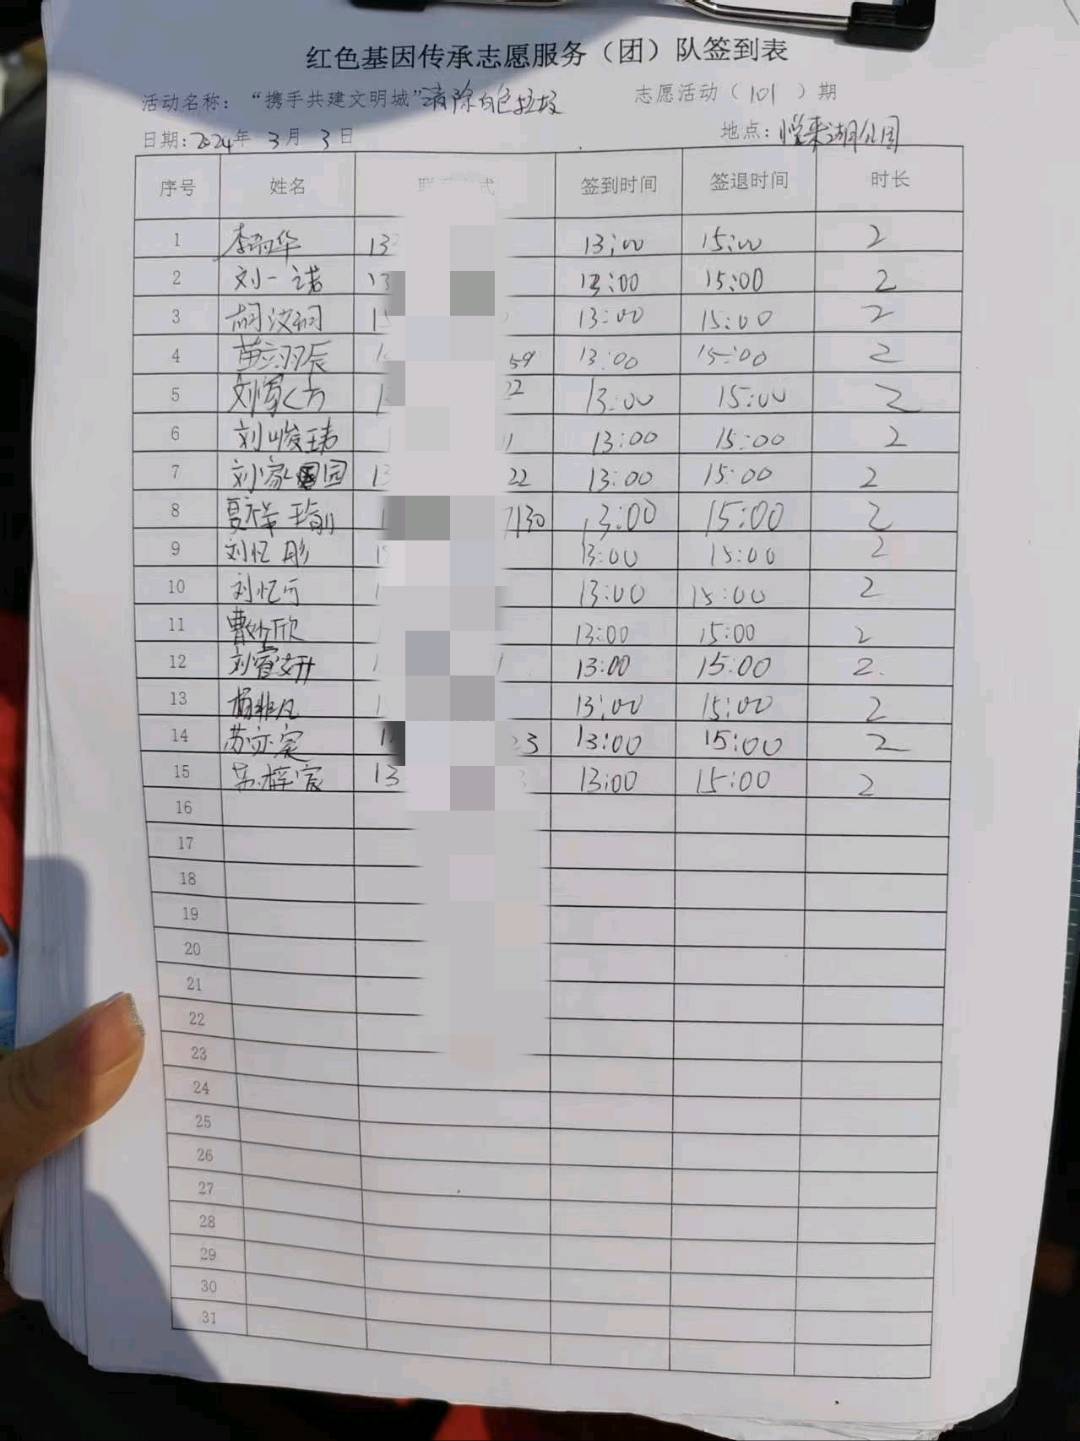 红色基因传承志愿服务（团）队签到表
活动名称："携手共建文明城"清除白色垃圾 志愿活动（101）期
日期:2024年 3月 3日 地点:悦来湖公园
序号 姓名 式 签到时间 签退时间 时长
1 华 13 13:00 15:00 2
2 刘一诺 13 13:00 15:00 2
3 胡汶桐 1 13:00 15:00 2
4 苗羽辰 1 59 13:00 15:00 2
5 刘 1 22 13:00 15:00 2
6 刘峻玮 13:00 15:00 2
7 刘家园 13 22 13:00 15:00 2
8 夏 7130 13:00 15:00 2
9 刘忆彤 1 13:00 15:00 2
10 刘忆 1 13:00 15:00 2
11 曹欣 13:00 15:00 2
12 刘睿妍 1 13:00 15:00 2.
13 杨非凡 1 13:00 15:00 2
14 苏亦宸 1 23 13:00 15:00 2
15 梓宸 13 13:00 15:00 2
16
17
18
19
20
21
22
23
24
25
26
27
28
29
30
31